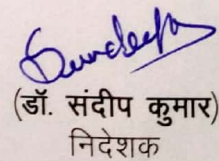 Sandeep
(डॉ. संदीप कुमार)
निदेशक